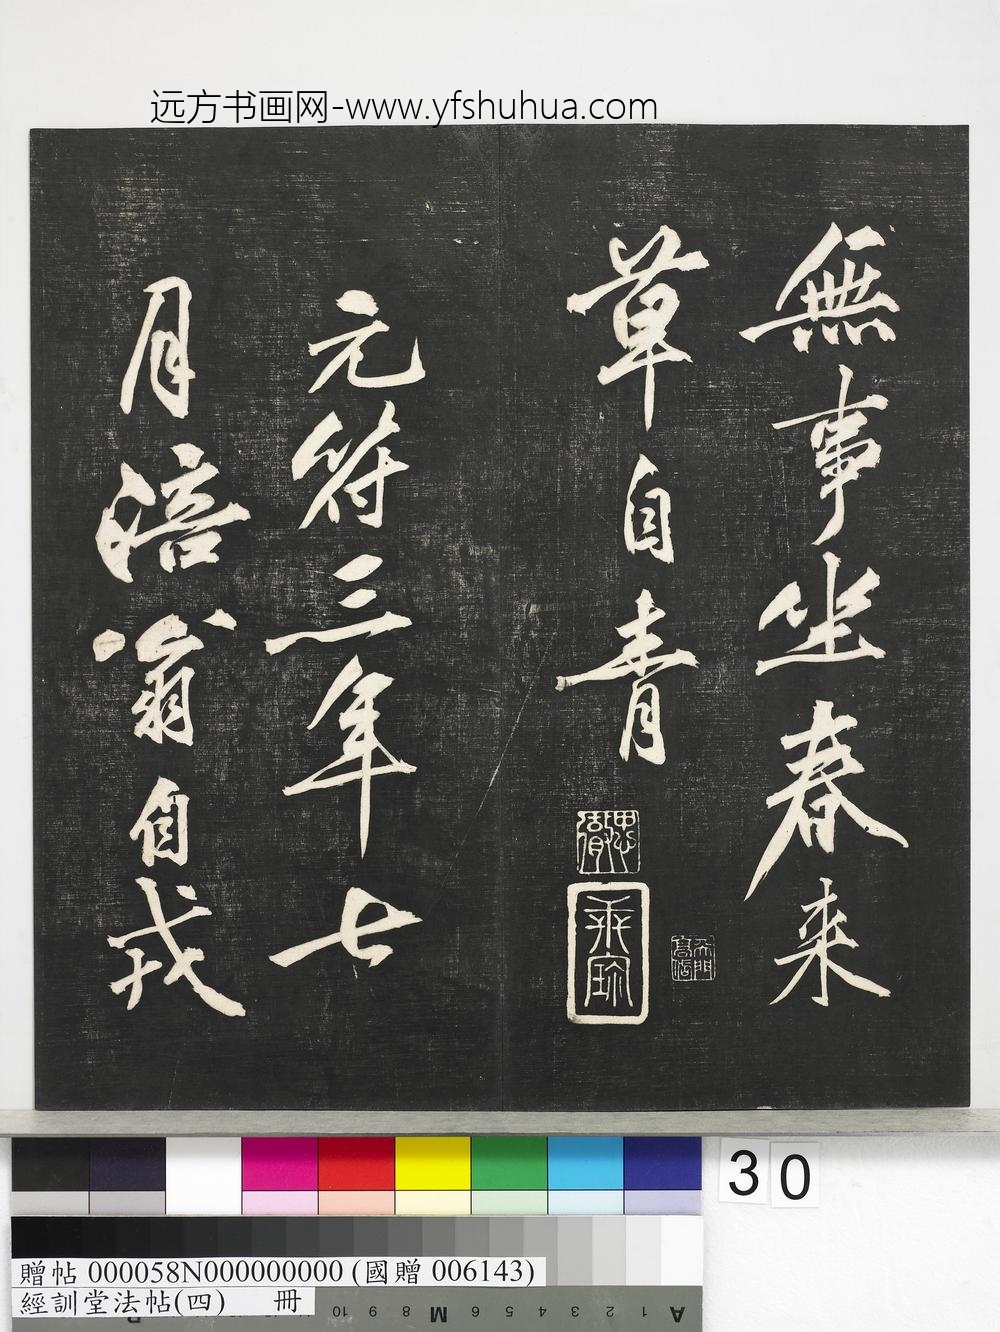 远方书画网-www.yfshuhua.com
無事坐春来
草自青
元符三年七
月涪翁自戒
30
贈帖 000058N000000000 (國贈 006143)
經訓堂法帖(四) 冊
10 9 8 M 6 5 4 3 2 1 A